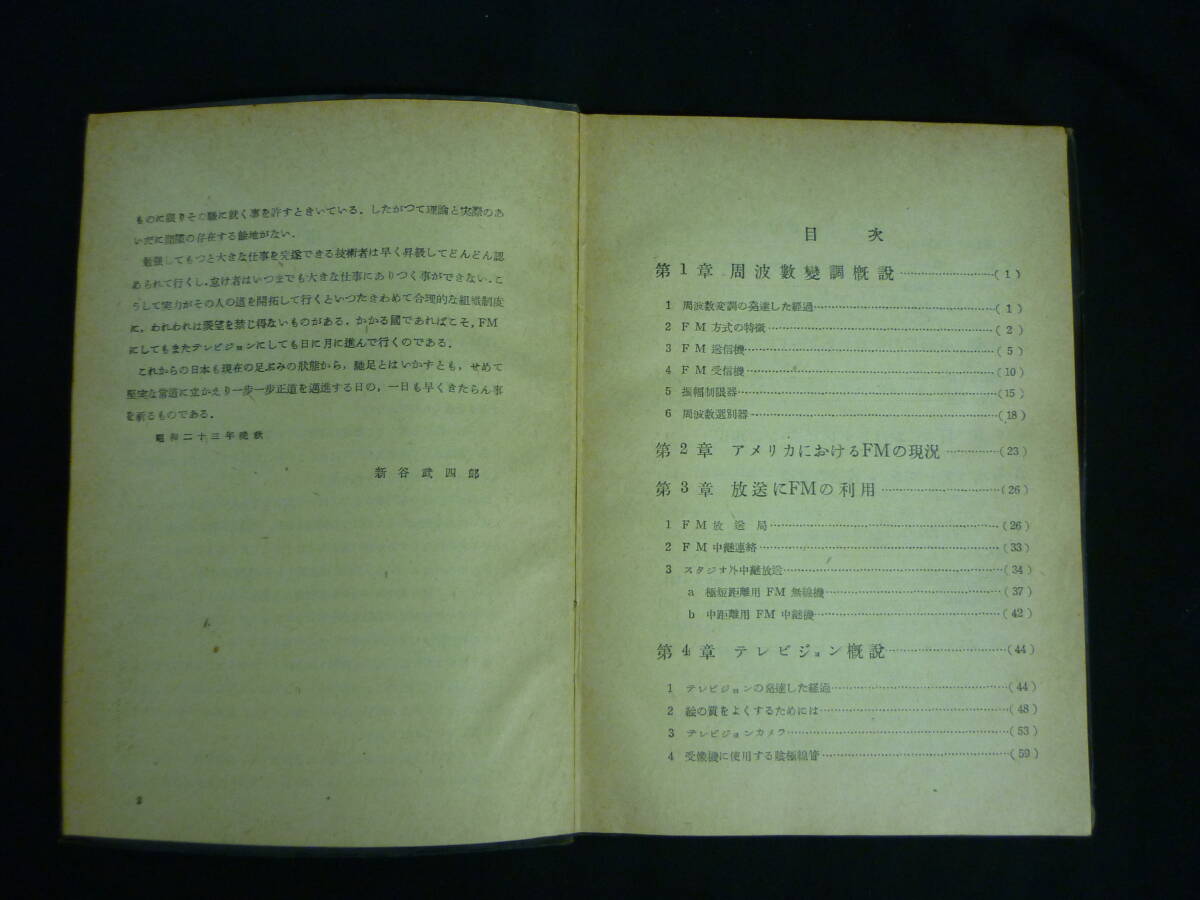 ものに限りその職に就く事を許すときいている．したがつて理論と実際のあ
いだに間隙の存在する餘地がない．
勉強してもつと大きな仕事を完遂できる技術者は早く昇級してどんどん認
められて行くし，怠け者はいつまでも大きな仕事にありつく事ができない．こ
うして実力がその人の道を開拓して行くといつたきわめて合理的な組織制度
に，われわれは羨望を禁じ得ないものがある．かかる國であればこそ，FM
にしてもまたテレビジョンにしても日に月に進んで行くのである．
これからの日本も現在の足ぶみの狀態から，馳足とはいかずとも，せめて
堅実な常道に立かえり一歩一歩正道を邁進する日の，一日も早くきたらん事
を祈るものである．
昭和二十三年晩秋
新谷武四郎
2
目次
第1章 周波數變調槪說…………(1)
1 周波数変調の発達した経過…………(1)
2 FM方式の特徴…………(2)
3 FM送信機…………(5)
4 FM受信機…………(10)
5 振幅制限器…………(15)
6 周波数選別器…………(18)
第2章 アメリカにおけるFMの現況…………(23)
第3章 放送にFMの利用…………(26)
1 FM放送局…………(26)
2 FM中継連絡…………(33)
3 スタジオ外中継放送…………(34)
a 極短距離用FM無線機…………(37)
b 中距離用FM中継機…………(42)
第4章 テレビジョン槪說…………(44)
1 テレビジョンの発達した経過…………(44)
2 絵の質をよくするためには…………(48)
3 テレビジョンカメラ…………(53)
4 受像機に使用する陰極線管…………(59)